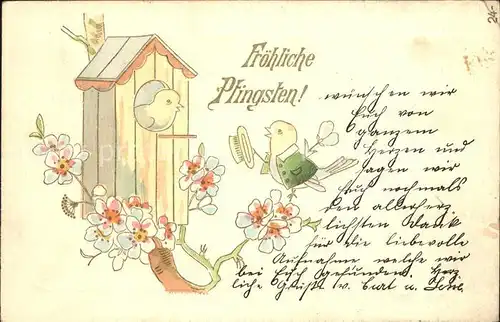 24.-
Fröhliche
Pfingsten!
wünschen wir
Euch von
ganzem
Herzen und
sagen wir
Euch nochmals
den allerherz
lichsten Dank
für die liebevolle
Aufnahme welche wir
bei Euch gefunden. Herz
liche Grüße v. Curt u.